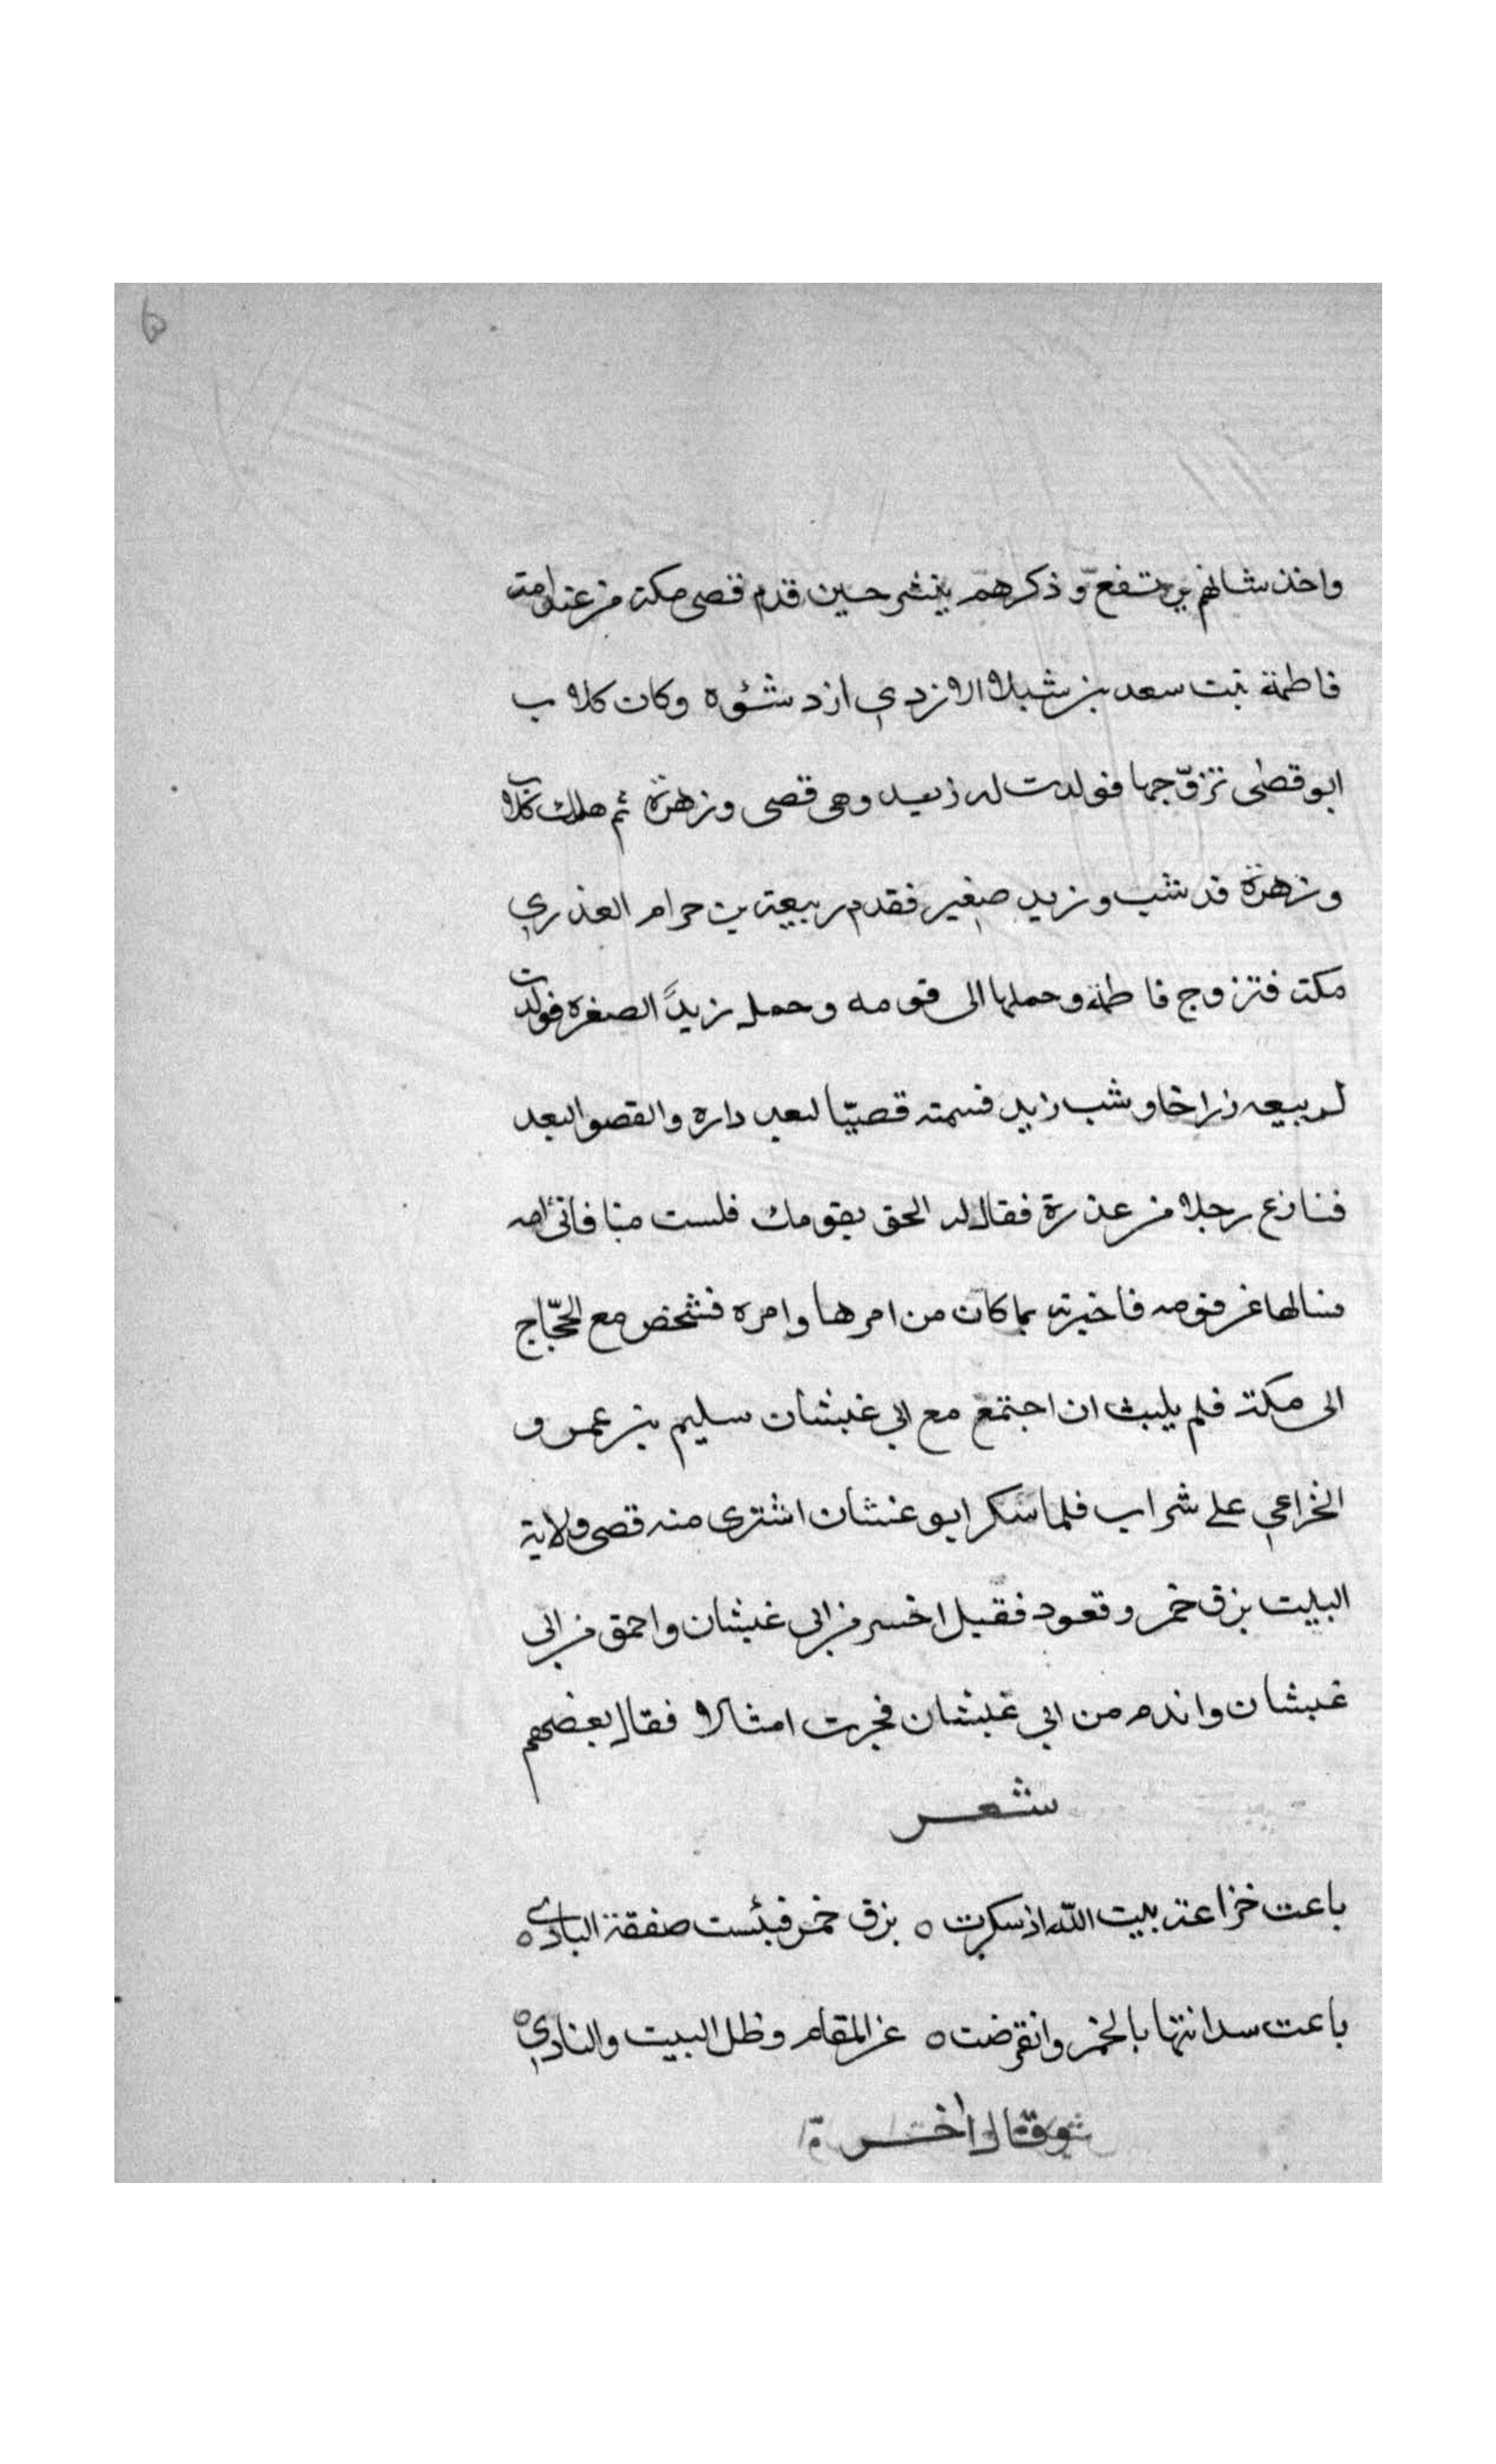 واخذ شانهم يرتفع وذكرهم ينشر حين قدم قصى مكة من عند امه
فاطمة بنت سعد بن شبلا الازدي ازد شنؤه وكان كلاب
ابو قصى تزوّجها فولدت له زيد وهى قصى وزهرة ثم هلك كلاب
وزهرة قد شب وزيد صغير فقدم ربيعة بن حرام العذري
مكة فتزوج فاطمة وحملها الى قومه وحمل زيدًا لصغره فولدت
لربيعه زراخا وشب زيد فسمته قصيّا لبعد داره والقصو البعد
فنازع رجلا من عذرة فقال له الحق بقومك فلست منا فاتى امه
فسالها عن قومه فاخبرته بما كان من امرها وامره فشخص مع الحجّاج
الى مكة فلم يلبث ان اجتمع مع ابي غبشان سليم بن عمرو
الخزاعي على شراب فلما سكر ابو غبشان اشترى منه قصى ولاية
البيت بزق خمر وقعود فقيل اخسر من ابى غبشان واحمق من ابى
غبشان واندم من ابي غبشان فجرت امثالا فقال بعضهم
شعر
باعت خزاعة بيت الله اذ سكرت ه بزق خمر فبئست صفقة البادي ه
باعت سدانتها بالخمر وانقرضت ه عن المقام وظل البيت والنادي ه
وقال اخر